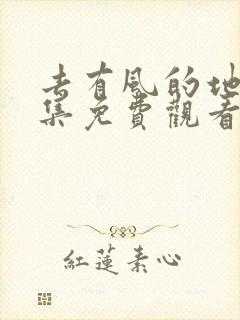 去有風的地
集免費觀看
紅蓮素心